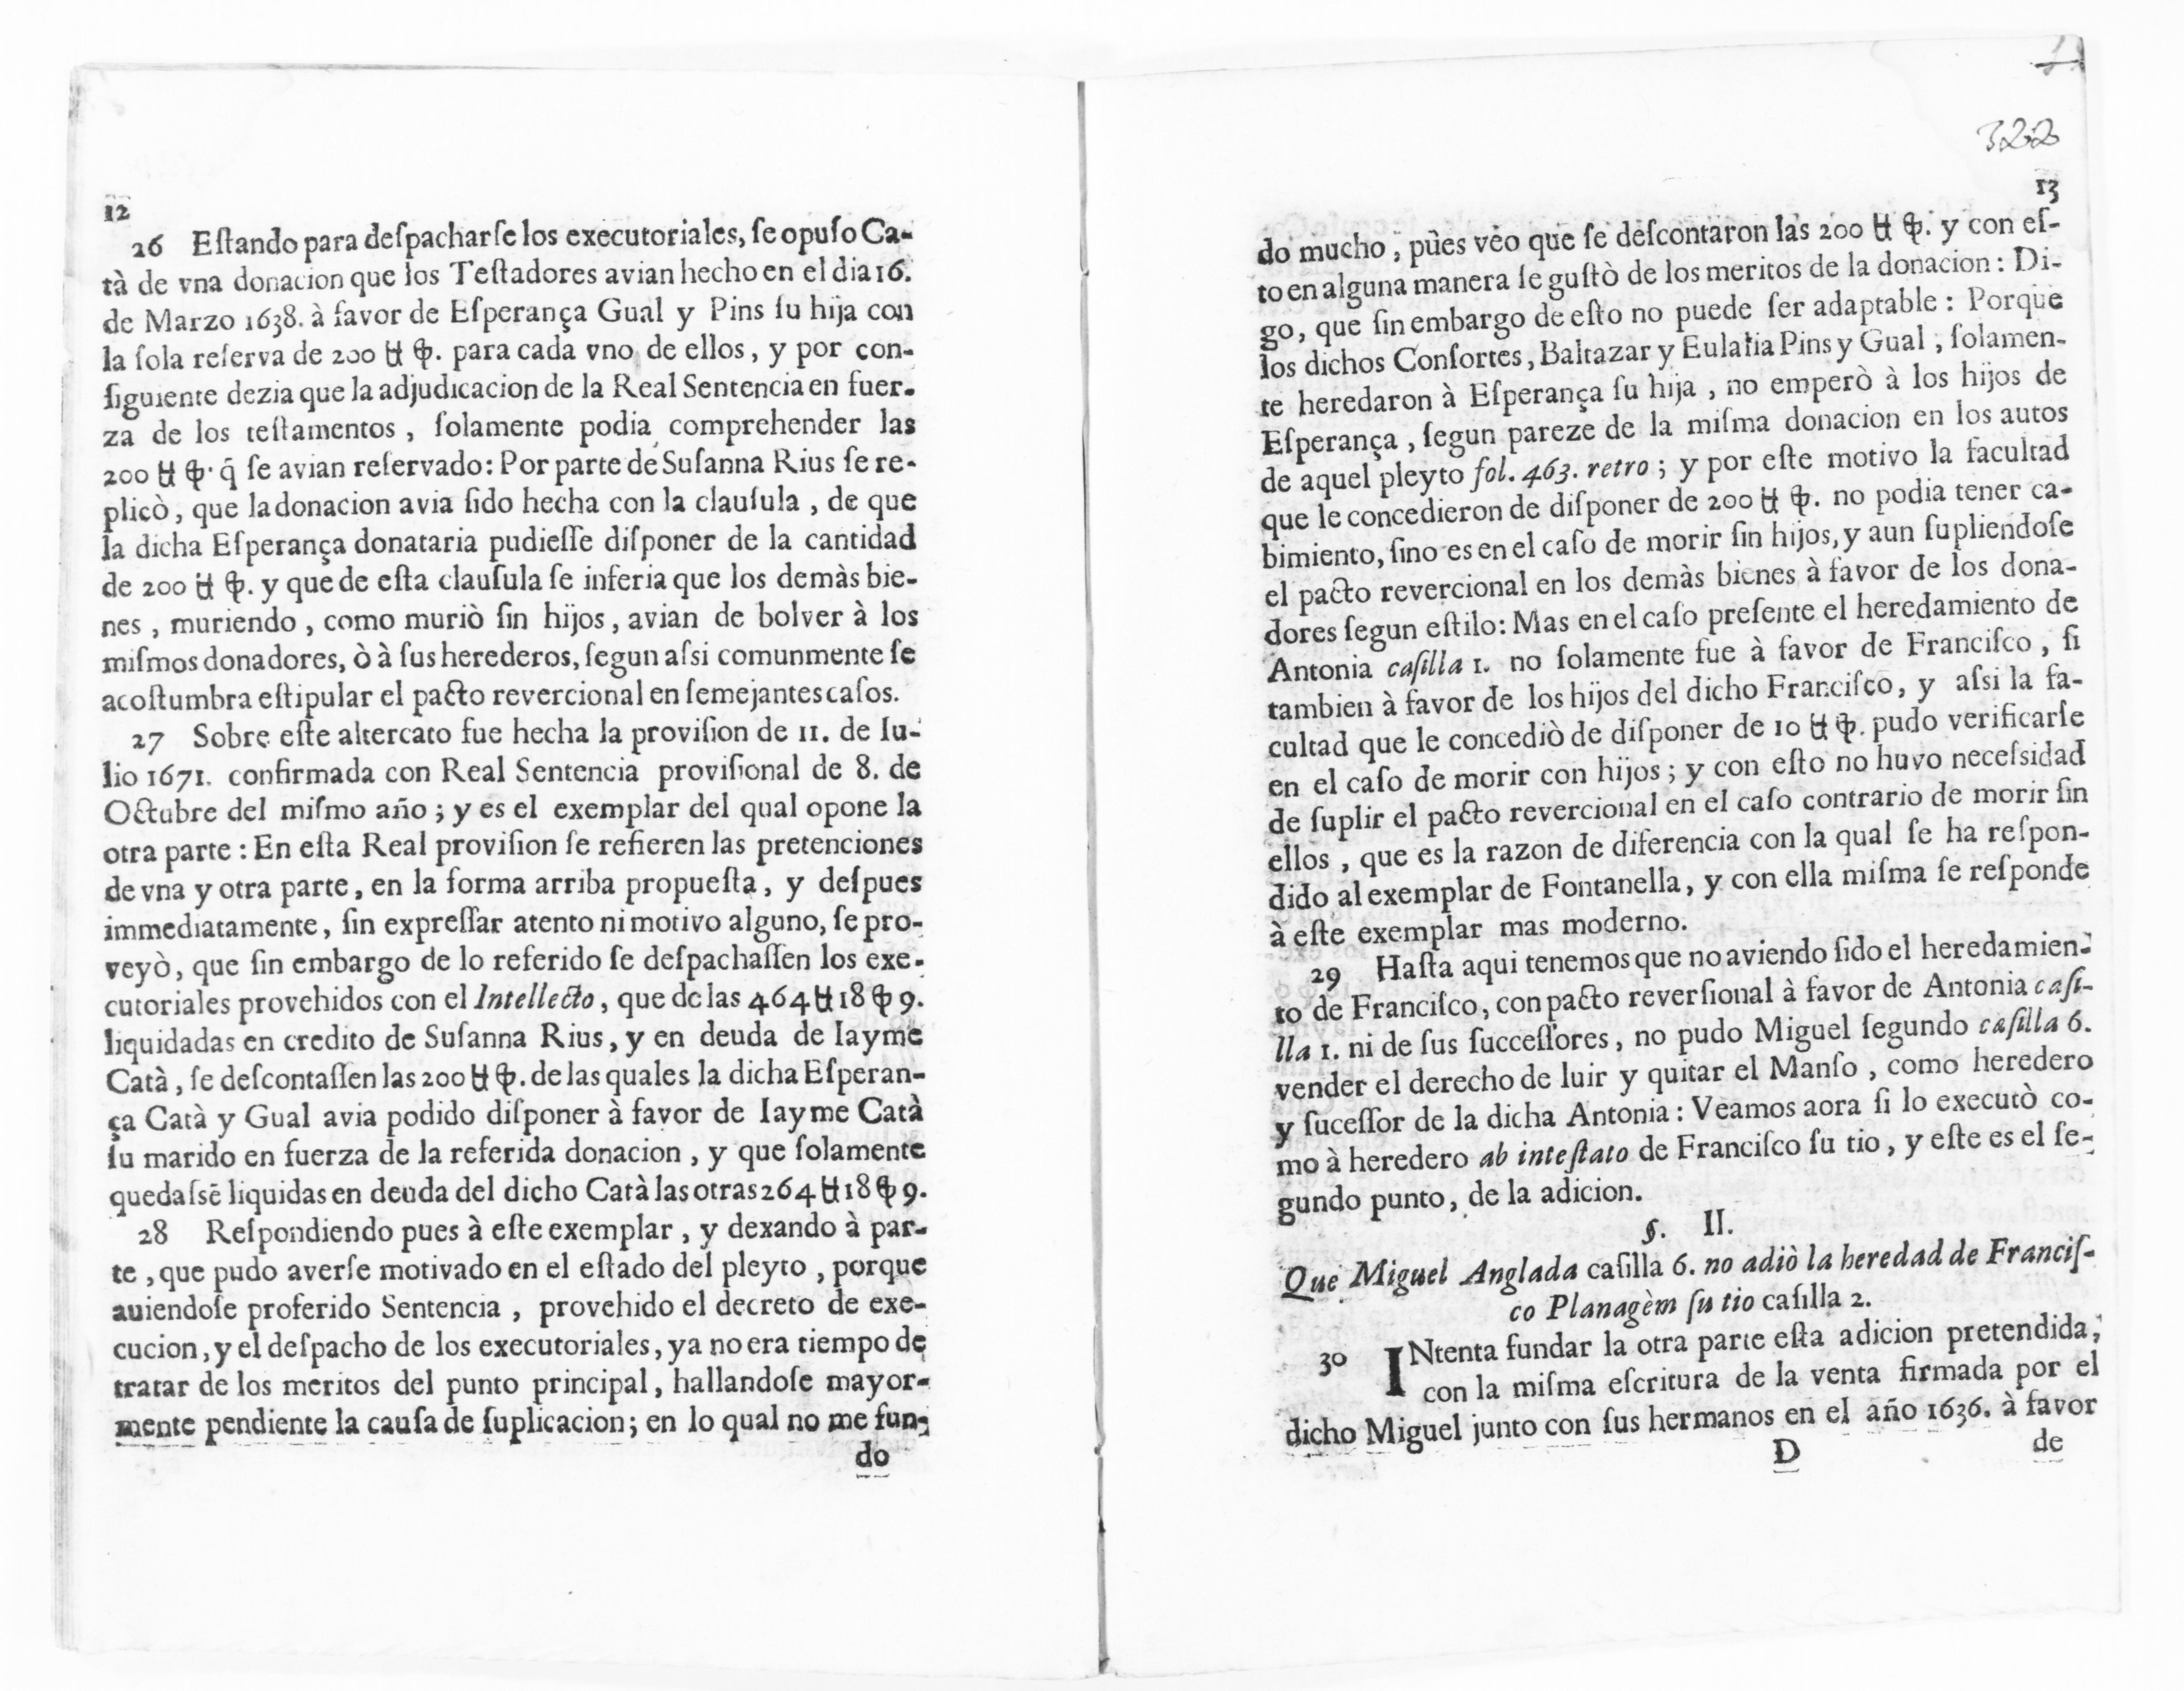 12
26 Eſtando para deſpacharſe los executoriales, ſe opuſo Ca-
tà de vna donacion que los Teſtadores avian hecho en el dia 16.
de Marzo 1638. à favor de Eſperança Gual y Pins ſu hija con
la ſola reſerva de 200 ℔ ꝕ. para cada vno de ellos, y por con-
ſiguiente dezia que la adjudicacion de la Real Sentencia en fuer-
za de los teſtamentos, ſolamente podia comprehender las
200 ℔ ꝕ. q̃ ſe avian reſervado: Por parte de Suſanna Rius ſe re-
plicò, que la donacion avia ſido hecha con la clauſula, de que
la dicha Eſperança donataria pudieſſe diſponer de la cantidad
de 200 ℔ ꝕ. y que de eſta clauſula ſe inferia que los demàs bie-
nes, muriendo, como muriò ſin hijos, avian de bolver à los
miſmos donadores, ò à ſus herederos, ſegun aſsi comunmente ſe
acoſtumbra eſtipular el pacto revercional en ſemejantes caſos.
27 Sobre eſte altercato fue hecha la proviſion de 11. de Iu-
lio 1671. confirmada con Real Sentencia proviſional de 8. de
Octubre del miſmo año; y es el exemplar del qual opone la
otra parte: En eſta Real proviſion ſe refieren las pretenciones
de vna y otra parte, en la forma arriba propueſta, y deſpues
immediatamente, ſin expreſſar atento ni motivo alguno, ſe pro-
veyò, que ſin embargo de lo referido ſe deſpachaſſen los exe-
cutoriales provehidos con el Intellecto, que de las 464 ℔ 18 ꝕ 9.
liquidadas en credito de Suſanna Rius, y en deuda de Iayme
Catà, ſe deſcontaſſen las 200 ℔ ꝕ. de las quales la dicha Eſperan-
ça Catà y Gual avia podido diſponer à favor de Iayme Catà
ſu marido en fuerza de la referida donacion, y que ſolamente
quedaſsẽ liquidas en deuda del dicho Catà las otras 264 ℔ 18 ꝕ 9.
28 Reſpondiendo pues à eſte exemplar, y dexando à par-
te, que pudo averſe motivado en el eſtado del pleyto, porque
auiendoſe proferido Sentencia, provehido el decreto de exe-
cucion, y el deſpacho de los executoriales, ya no era tiempo de
tratar de los meritos del punto principal, hallandoſe mayor-
mente pendiente la cauſa de ſuplicacion; en lo qual no me fun-
do
322
13
do mucho, pues veo que ſe deſcontaron las 200 ℔ ꝕ. y con eſ-
to en alguna manera ſe guſtò de los meritos de la donacion: Di-
go, que ſin embargo de eſto no puede ſer adaptable: Porque
los dichos Conſortes, Baltazar y Eulalia Pins y Gual, ſolamen-
te heredaron à Eſperança ſu hija, no emperò à los hijos de
Eſperança, ſegun pareze de la miſma donacion en los autos
de aquel pleyto fol. 463. retro; y por eſte motivo la facultad
que le concedieron de diſponer de 200 ℔ ꝕ. no podia tener ca-
bimiento, ſino es en el caſo de morir ſin hijos, y aun ſupliendoſe
el pacto revercional en los demàs bienes à favor de los dona-
dores ſegun eſtilo: Mas en el caſo preſente el heredamiento de
Antonia caſilla 1. no ſolamente fue à favor de Franciſco, ſi
tambien à favor de los hijos del dicho Franciſco, y aſsi la fa-
cultad que le concediò de diſponer de 10 ℔ ꝕ. pudo verificarſe
en el caſo de morir con hijos; y con eſto no huvo neceſsidad
de ſuplir el pacto revercional en el caſo contrario de morir ſin
ellos, que es la razon de diferencia con la qual ſe ha reſpon-
dido al exemplar de Fontanella, y con ella miſma ſe reſponde
à eſte exemplar mas moderno.
29 Haſta aqui tenemos que no aviendo ſido el heredamien-
to de Franciſco, con pacto reverſional à favor de Antonia caſi-
lla 1. ni de ſus ſucceſſores, no pudo Miguel ſegundo caſilla 6.
vender el derecho de luir y quitar el Manſo, como heredero
y ſuceſſor de la dicha Antonia: Veamos aora ſi lo executò co-
mo à heredero ab inteſtato de Franciſco ſu tio, y eſte es el ſe-
gundo punto, de la adicion.
§. II.
Que Miguel Anglada caſilla 6. no adiò la heredad de Franciſ-
co Planagèm ſu tio caſilla 2.
30 INtenta fundar la otra parte eſta adicion pretendida,
con la miſma eſcritura de la venta firmada por el
dicho Miguel junto con ſus hermanos en el año 1636. à favor
D de